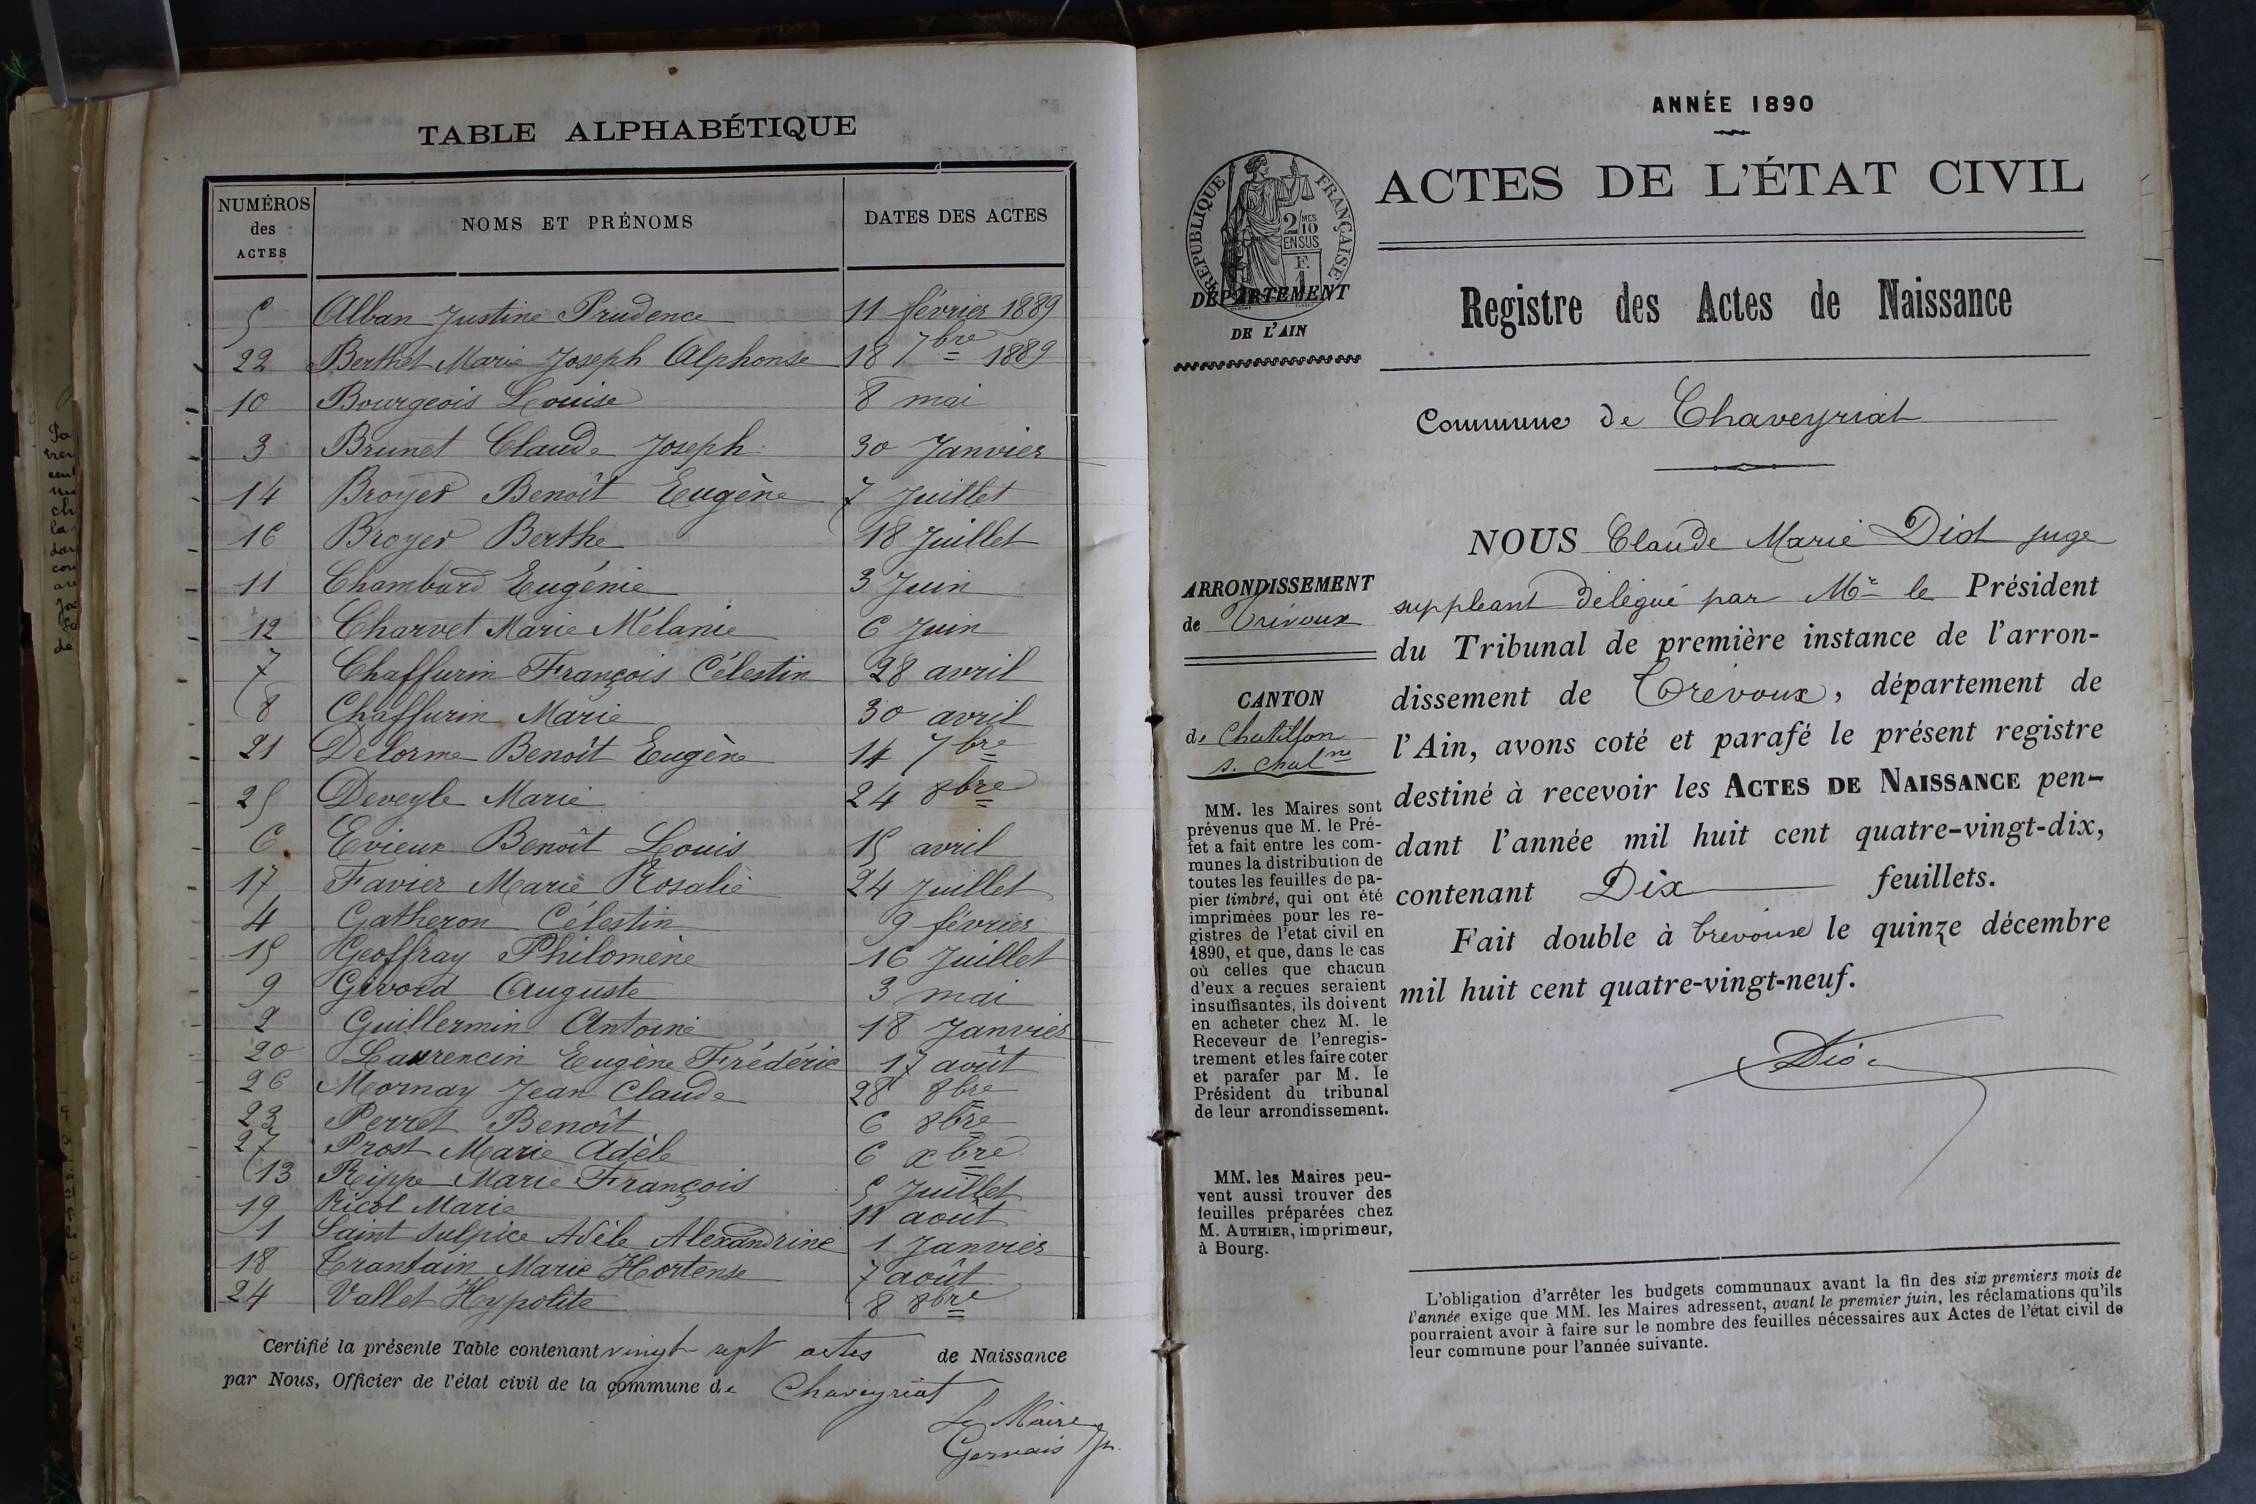 TABLE ALPHABÉTIQUE
NUMÉROS des ACTES NOMS ET PRÉNOMS DATES DES ACTES
5 Alban Justine Prudence 11 février 1889
22 Berthet Marie Joseph Alphonse 18 7bre 1889
10 Bourgeois Louise 8 mai
3 Brunet Claude Joseph 30 Janvier
14 Broyer Benoît Eugène 7 Juillet
16 Broyer Berthe 18 Juillet
11 Chambard Eugénie 3 Juin
12 Charvet Marie Mélanie 6 Juin
7 Chaffurin François Célestin 28 avril
8 Chaffurin Marie 30 avril
21 Delorme Benoît Eugène 14 7bre
25 Deveyle Marie 24 8bre
6 Evieux Benoît Louis 15 avril
17 Favier Marie Rosalie 24 Juillet
4 Gatheron Célestin 9 février
15 Geoffray Philomène 16 Juillet
9 Givord Auguste 3 mai
2 Guillermin Antoine 18 Janvier
20 Laurencin Eugène Frédéric 17 août
26 Mornay Jean Claude 28 8bre
23 Perret Benoît 6 8bre
27 Prost Marie Adèle 6 xbre
13 Reippe Marie François 5 Juillet
19 Ricol Marie 11 août
1 Saint Sulpice Adèle Alexandrine 1 Janvier
18 Trantain Marie Hortense 7 août
24 Vallet Hypolite 8 8bre
Certifié la présente Table contenant vingt sept actes de Naissance
par Nous, Officier de l'état civil de la commune de Chaveyriat
Le Maire
Gervais
ANNÉE 1890
RÉPUBLIQUE FRANÇAISE
2/10 MES
EN SUS
F.
1
ACTES DE L'ÉTAT CIVIL
DÉPARTEMENT
DE L'AIN
Registre des Actes de Naissance
Commune de Chaveyriat
ARRONDISSEMENT
de Trévoux
CANTON
de Chatillon
s. Chalne
MM. les Maires sont
prévenus que M. le Pré-
fet a fait entre les com-
munes la distribution de
toutes les feuilles de pa-
pier timbré, qui ont été
imprimées pour les re-
gistres de l'etat civil en
1890, et que, dans le cas
où celles que chacun
d'eux a reçues seraient
insuffisantes, ils doivent
en acheter chez M. le
Receveur de l'enregis-
trement et les faire coter
et parafer par M. le
Président du tribunal
de leur arrondissement.
MM. les Maires peu-
vent aussi trouver des
feuilles préparées chez
M. AUTHIER, imprimeur,
à Bourg.
NOUS Claude Marie Diot juge
suppleant délégué par Mr le Président
du Tribunal de première instance de l'arron-
dissement de Trévoux, département de
l'Ain, avons coté et parafé le présent registre
destiné à recevoir les ACTES DE NAISSANCE pen-
dant l'année mil huit cent quatre-vingt-dix,
contenant Dix feuillets.
Fait double à Trevoux le quinze décembre
mil huit cent quatre-vingt-neuf.
L'obligation d'arrêter les budgets communaux avant la fin des six premiers mois de
l'année exige que MM. les Maires adressent, avant le premier juin, les réclamations qu'ils
pourraient avoir à faire sur le nombre des feuilles nécessaires aux Actes de l'état civil de
leur commune pour l'année suivante.